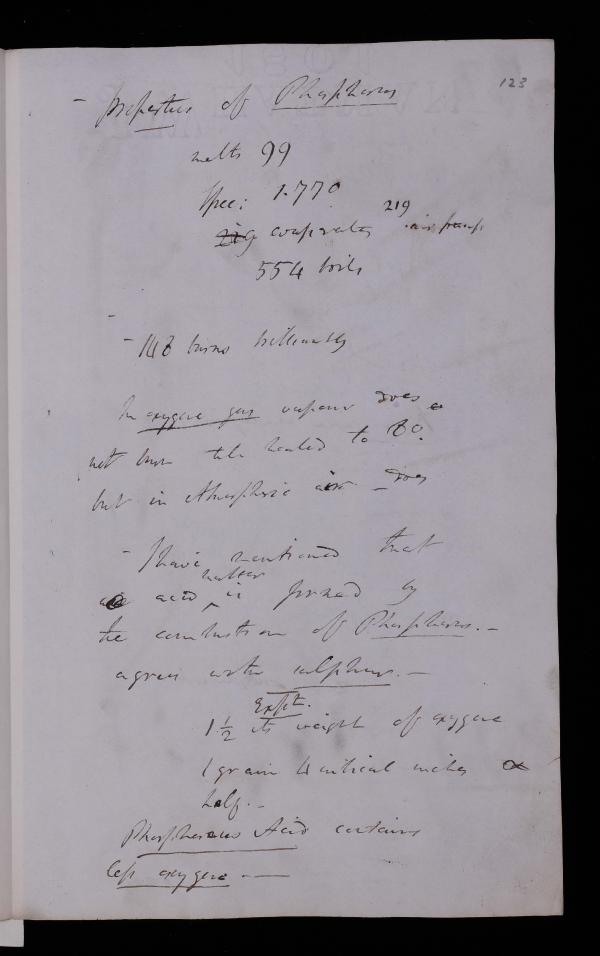 123
- properties of Phosphorus
melts 99
Spec: 1.770
219 evaporates 219 air pump
554 boils
- 148 burns brilliantly
In oxygene gas vapour does
not burn till heated to 80.
but in Atmospheric air - does
- I have mentioned that
an acid matter is formed by
the combustion of Phosphorus. -
agrees with sulphur. -
Expt.
1 1/2 its weight of oxygene
1 grain 4 cubical inches &
half. -
Phosphorous Acid contains
less oxygene. -